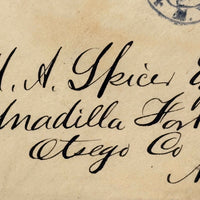 A. Spicer
Unadilla For
Otsego Co
N